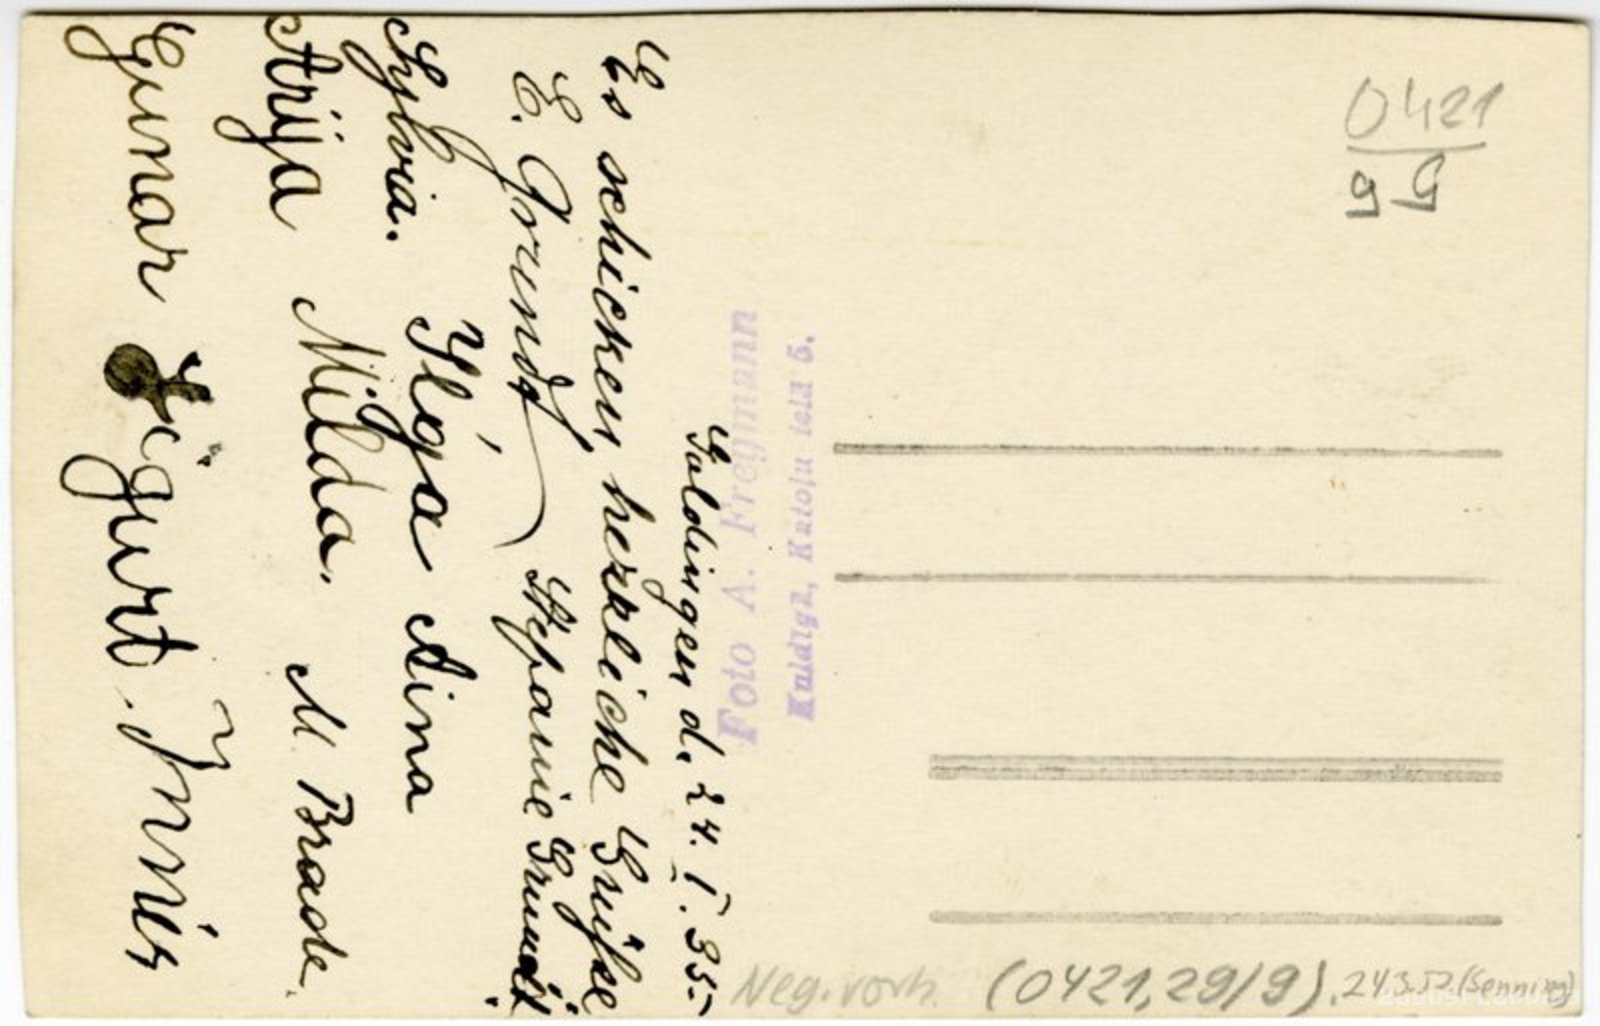 Goldingen d. 24. I. 35-
Es schicken herzliche Grüße
E. Grundt Stefanie Grundt.
Sylvia. Ilga Aina
Arija Milda. M. Brade.
Gunar Sigurt.
Foto A. Freymann
Kuldīgā, Katoļu ielā 5.
0421
99
Neg. vorh. (0421, 29/9). 24.3.52. (Senning)